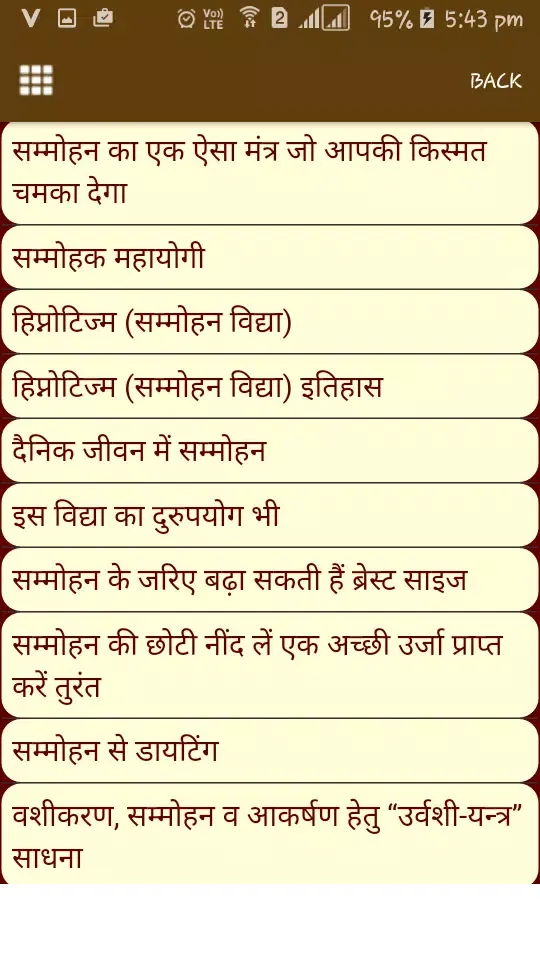 Vo)) LTE 2 95% 5:43 pm
BACK
सम्मोहन का एक ऐसा मंत्र जो आपकी किस्मत
चमका देगा
सम्मोहक महायोगी
हिप्नोटिज्म (सम्मोहन विद्या)
हिप्नोटिज्म (सम्मोहन विद्या) इतिहास
दैनिक जीवन में सम्मोहन
इस विद्या का दुरुपयोग भी
सम्मोहन के जरिए बढ़ा सकती हैं ब्रेस्ट साइज
सम्मोहन की छोटी नींद लें एक अच्छी उर्जा प्राप्त
करें तुरंत
सम्मोहन से डायटिंग
वशीकरण, सम्मोहन व आकर्षण हेतु “उर्वशी-यन्त्र”
साधना